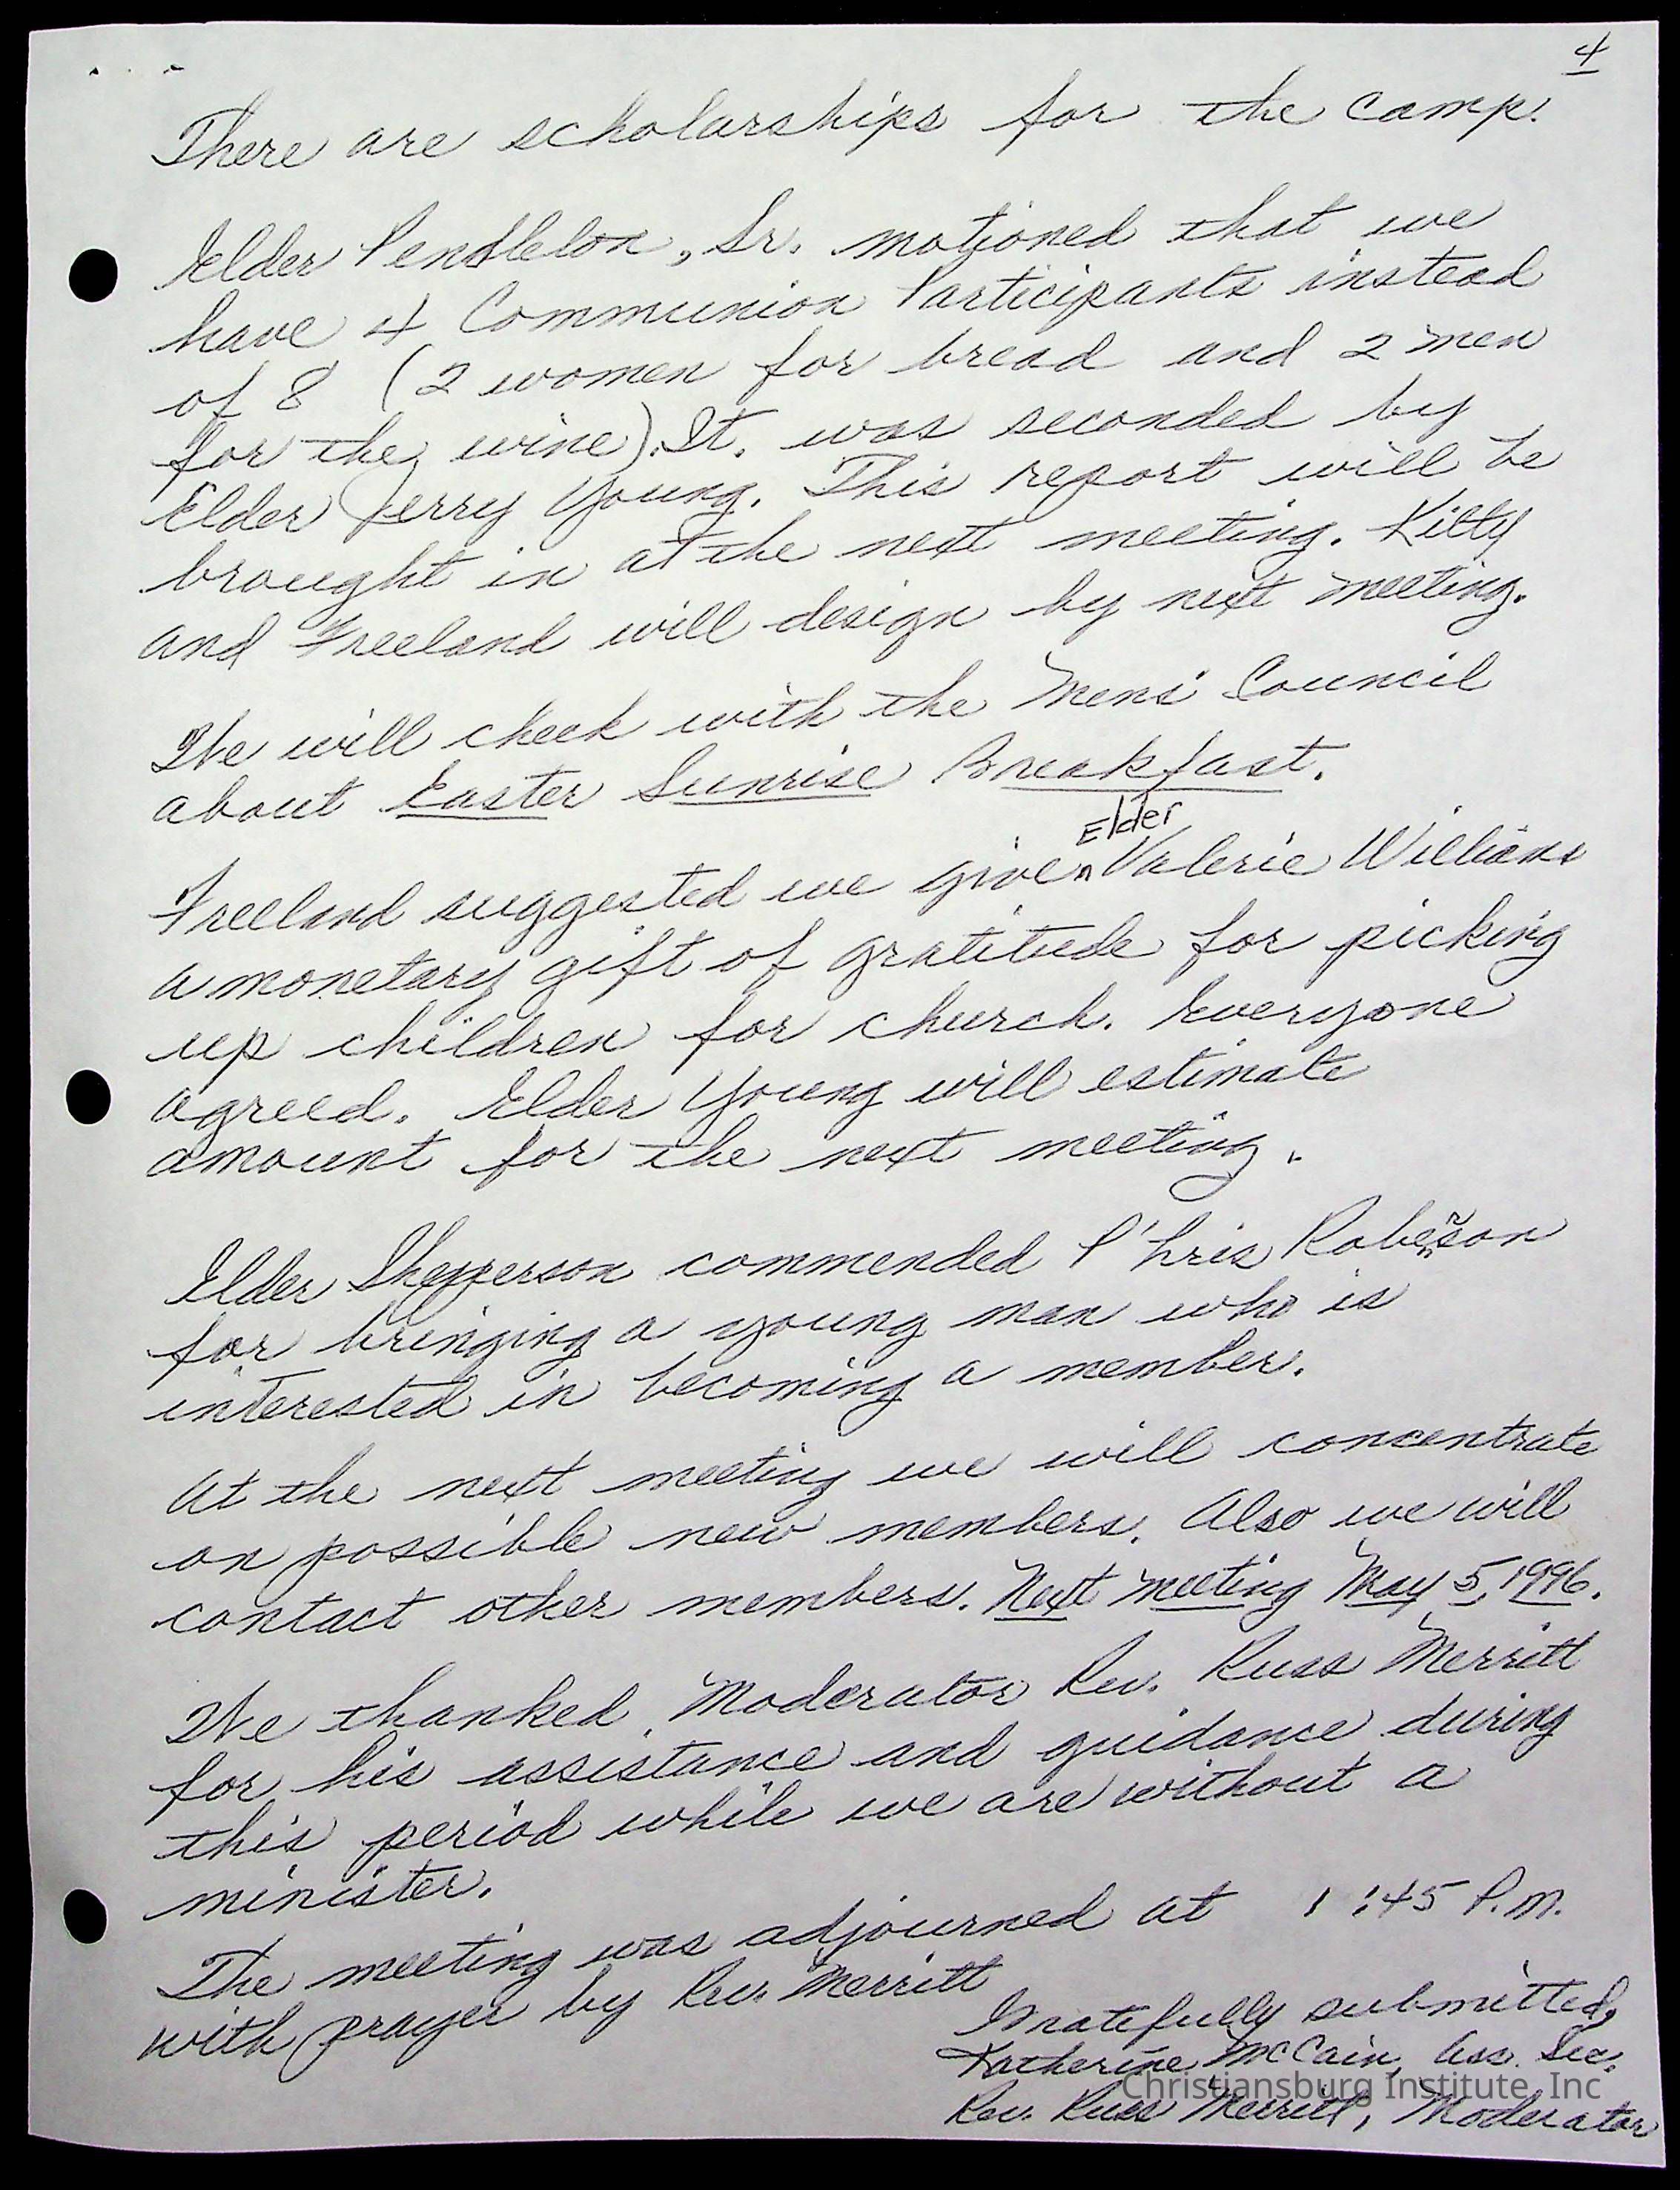 4
There are scholarships for the camp.
Elder Pendleton, Sr. motioned that we
have 4 Communion Participants instead
of 8 (2 women for bread and 2 men
for the wine). It. was seconded by
Elder Jerry Young. This report will be
brought in at the next meeting. Kitty
and Freeland will design by next meeting.
We will check with the Mens' Council
about Easter Sunrise Breakfast.
Elder
Freeland suggested we give Valerie Williams
a monetary gift of gratitude for picking
up children for church. Everyone
agreed. Elder Young will estimate
amount for the next meeting.
Elder Shepperson commended P'hris Roberson
for bringing a young man who is
interested in becoming a member.
At the next meeting we will concentrate
on possible new members. Also we will
contact other members. Next meeting May 5, 1996.
We thanked Moderator Rev. Russ Merritt
for his assistance and guidance during
this period while we are without a
minister.
The meeting was adjourned at 1:45 P.M.
with prayer by Rev. Merritt
Gratefully submitted,
Katherine McCain, Ass. Sec.
Christiansburg Institute, Inc
Rev. Russ Merritt, Moderator